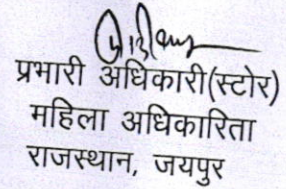 प्रभारी अधिकारी(स्टोर)
महिला अधिकारिता
राजस्थान, जयपुर